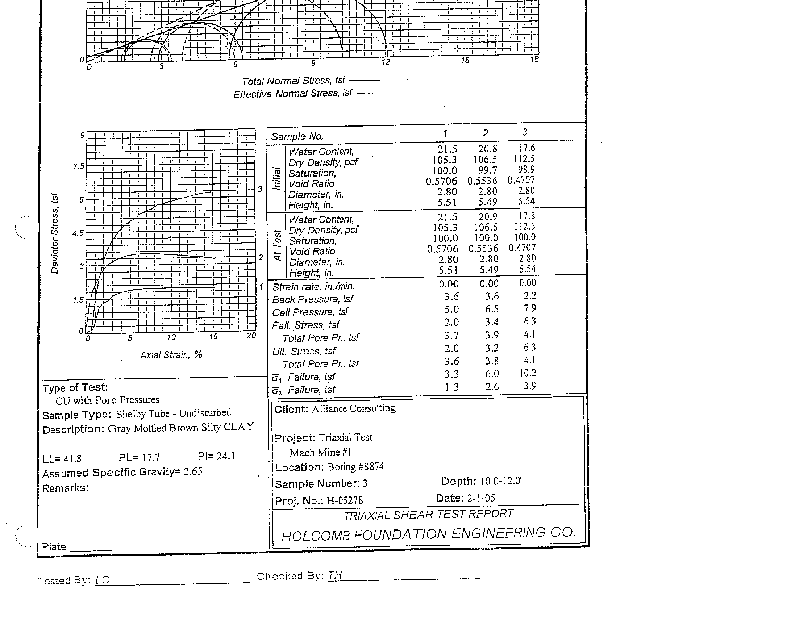 0 3 6 9 12 15 18
Total Normal Stress, tsf
Effective Normal Stress, tsf
Deviator Stress, tsf
7.5
6
4.5
3
1.5
0
0 5 10 15 20
Axial Strain, %
3
2
1
Sample No. 1 2 3
Initial
Water Content, 21.5 20.8 17.6
Dry Density, pcf 105.3 106.5 112.5
Saturation, 100.0 99.7 98.9
Void Ratio 0.5706 0.5536
Diameter, in. 2.80 2.80 2.80
Height, in. 5.51 5.49 5.54
At Test
Water Content, 21.5 20.9
Dry Density, pcf 105.3 106.5
Saturation, 100.0 100.0
Void Ratio 0.5706 0.5536 0.4707
Diameter, in. 2.80 2.80 2.80
Height, in. 5.51 5.49 5.54
Strain rate, in./min. 0.00 0.00 0.00
Back Pressure, tsf 3.6 3.6 2.2
Cell Pressure, tsf 5.0 6.5 7.9
Fail. Stress, tsf 2.0 3.4 6.3
Total Pore Pr., tsf 3.7 3.9 4.1
Ult. Stress, tsf 2.0 3.2 6.3
Total Pore Pr., tsf 3.6 3.8 4.1
σ̄₁ Failure, tsf 3.3 6.0 10.2
σ̄₃ Failure, tsf 1.3 2.6 3.9
Type of Test:
CU with Pore Pressures
Sample Type: Shelby Tube - Undisturbed
Description: Gray Mottled Brown Silty CLAY
LL= 41.8 PL= 17.7 PI= 24.1
Assumed Specific Gravity= 2.65
Remarks:
Plate
Client: Alliance Consulting
Project: Triaxial Test
Mach Mine #1
Location: Boring #8874
Sample Number: 3 Depth: 10.0-12.0'
Proj. No.: H-05278 Date: 2-1-05
TRIAXIAL SHEAR TEST REPORT
HOLCOMB FOUNDATION ENGINEERING CO.
Tested By: Checked By: TH